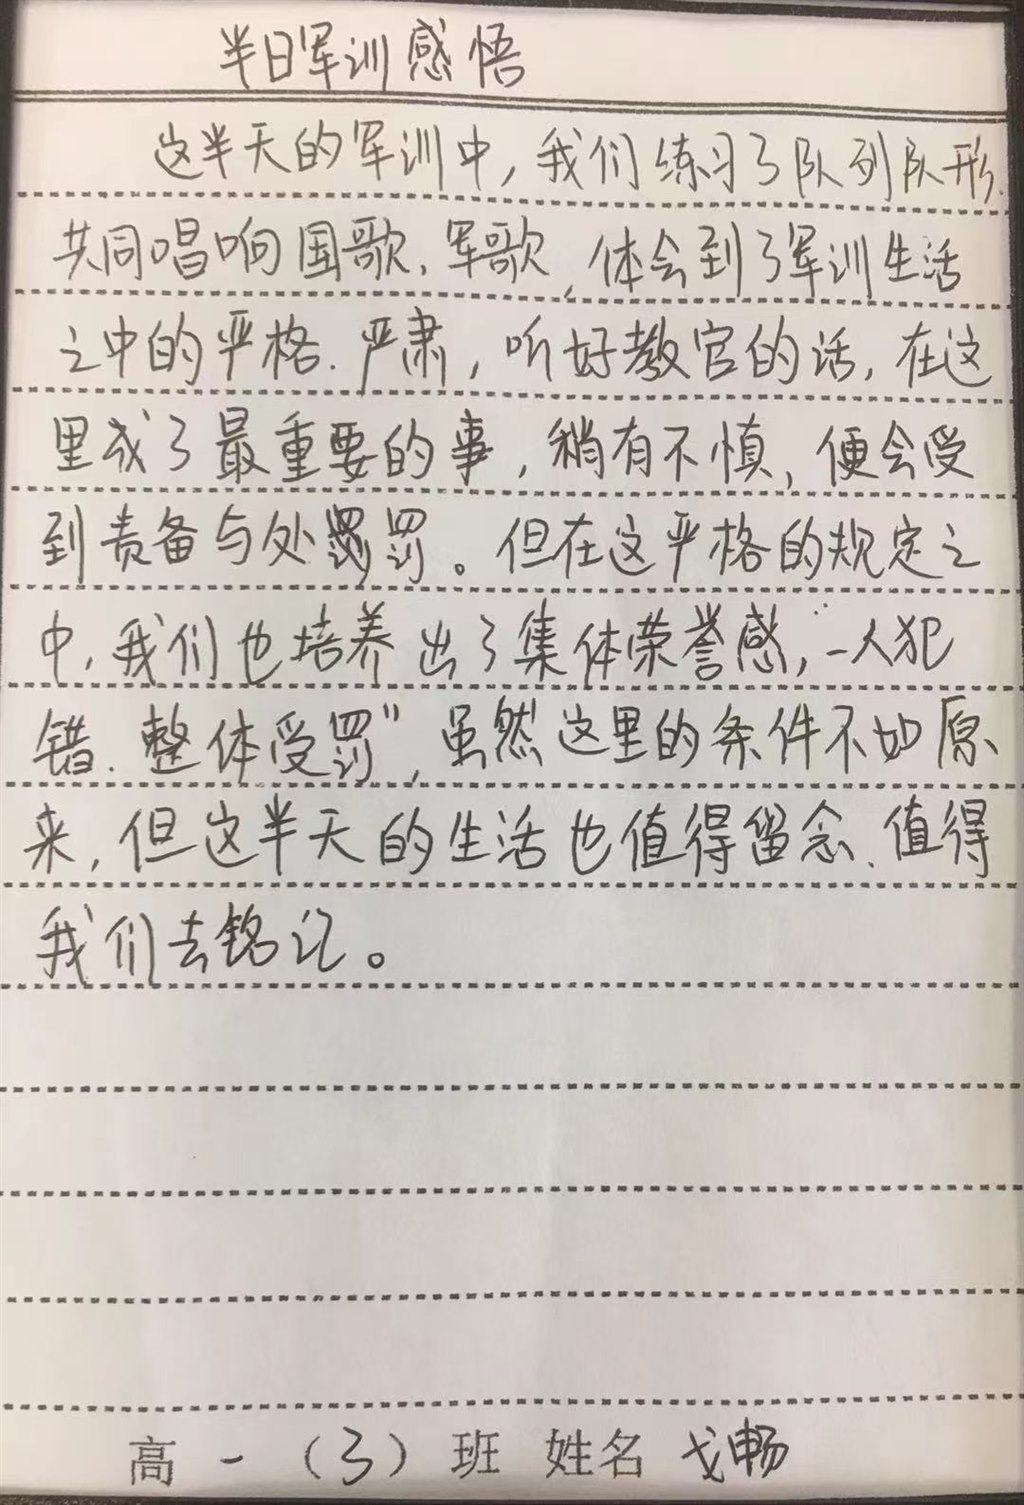 半日军训感悟
这半天的军训中,我们练习了队列队形.
共同唱响国歌、军歌,体会到了军训生活
之中的严格.严肃,听好教官的话,在这
里成了最重要的事,稍有不慎,便会受
到责备与处罚。但在这严格的规定之
中,我们也培养出了集体荣誉感,“一人犯
错.整体受罚”,虽然这里的条件不如原
来,但这半天的生活也值得留念、值得
我们去铭记。
高一(3)班 姓名 戈畅